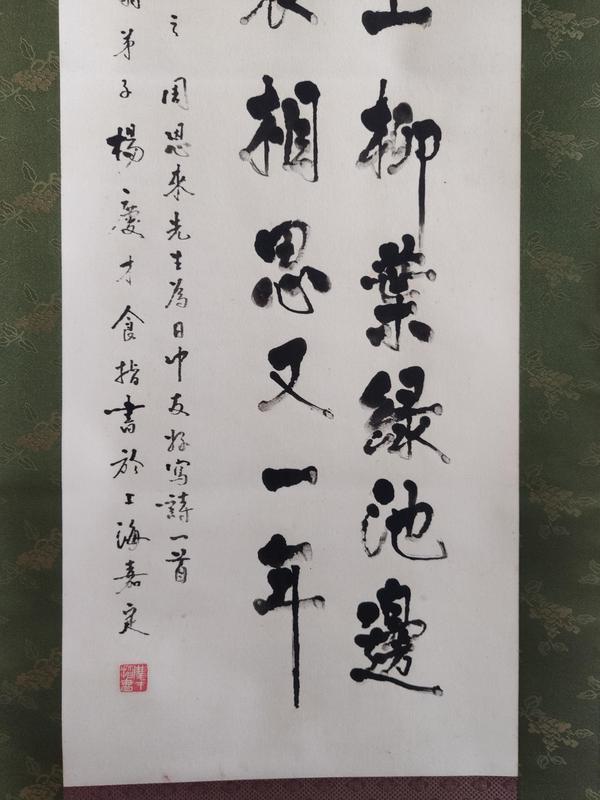 柳葉綠池邊
相思又一年
之周恩来先生為日中友好寫詩一首
弟子楊慶才食指書於上海嘉定